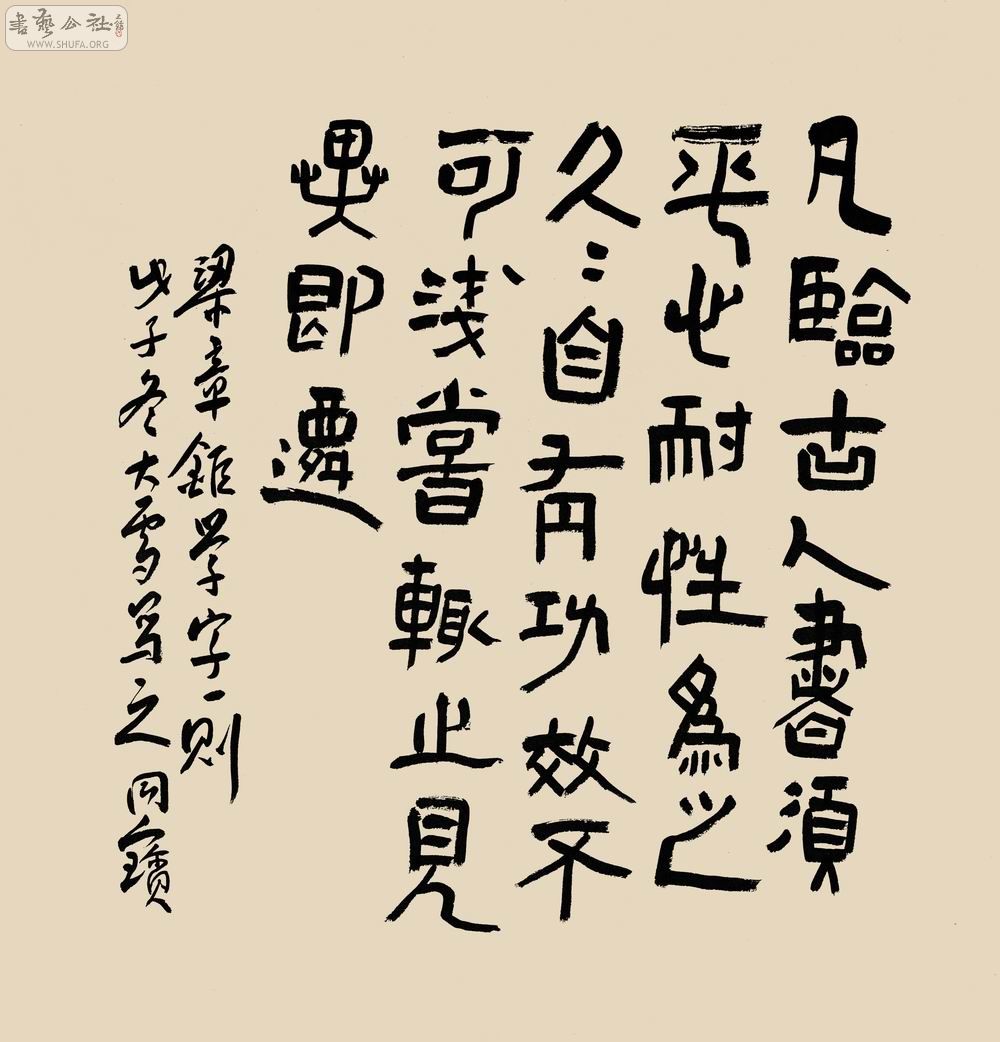 凡臨古人書須
平心耐性為之
久〻自有功效不
可淺嘗輒止見
異即遷
梁章鉅學字一則
戊子冬大雪写之同寶
書藝公社
WWW.SHUFA.ORG